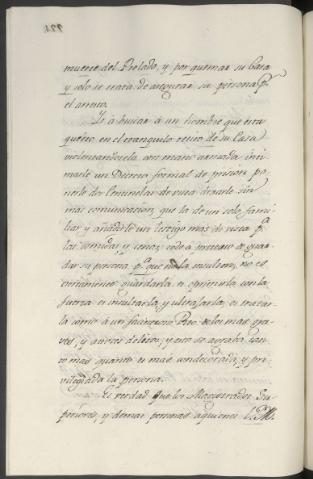 muerte del Prelado, y por quemar su Casa
y solo se trata de asegurar su persona pr.
el arresto.
Ir à buscar à un hombre que esta
quieto en el tranquilo retiro de su Casa
violentandosela con mano armada inti-
marle un Decreto formal de prision po-
nerle dos Centinelas de vista dexarle sin
mas comunicacion, que la de un solo fami-
liar y añadirle un testigo mas de vista pa.
las comidas y cenas; todo à pretexto de guar-
dar su persona pa. que no la insulten, no es
propiamente guardarla, es oprimirla con la
fuerza es insultarla, y ultrajarla, es tratar-
la como à un facineroso Reo de los mas gra-
ves, y atroces delitos; y esto se agrava tan-
to mas quanto es mas condecorada, y pri-
vilegiada la persona.
Es verdad que los Magistrados Su-
periores, y demas personas aquienes